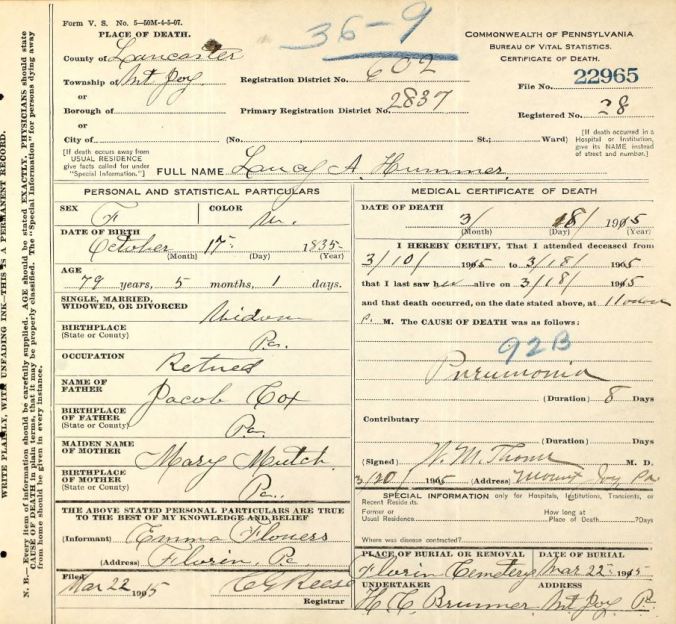 Form V. S. No. 5—50M-4-5-07.
36-9
PLACE OF DEATH.
COMMONWEALTH OF PENNSYLVANIA
BUREAU OF VITAL STATISTICS.
CERTIFICATE OF DEATH.
County of Lancaster
Township of Mt Joy
or
Borough of
or
City of
Registration District No. 602
Primary Registration District No. 2837
File No. 22965
Registered No. 28
(No. St.; Ward)
[If death occurs away from USUAL RESIDENCE give facts called for under "Special Information."]
[If death occurred in a Hospital or Institution, give its NAME instead of street and number.]
FULL NAME Lancy A. Hummer.
PERSONAL AND STATISTICAL PARTICULARS
SEX F
COLOR W.
DATE OF BIRTH
October 17 1835
(Month) (Day) (Year)
AGE
79 years, 5 months, 1 days.
SINGLE, MARRIED,
WIDOWED, OR DIVORCED Widow
BIRTHPLACE
(State or County) Pa.
OCCUPATION Retired
NAME OF
FATHER Jacob Cox
BIRTHPLACE
OF FATHER
(State or County) Pa.
MAIDEN NAME
OF MOTHER Mary Mutch
BIRTHPLACE
OF MOTHER
(State or County) Pa.
THE ABOVE STATED PERSONAL PARTICULARS ARE TRUE
TO THE BEST OF MY KNOWLEDGE AND BELIEF
(Informant) Emma Flowers
(Address) Florin, Pa
Filed
Mar 22 1915 C G Reese
Registrar
MEDICAL CERTIFICATE OF DEATH
DATE OF DEATH
3/ 18/ 1915
(Month) (Day) (Year)
I HEREBY CERTIFY, That I attended deceased from
3/10/ 1915 to 3/18/ 1915
that I last saw her alive on 3/18/ 1915
and that death occurred, on the date stated above, at 11
P. M. The CAUSE OF DEATH was as follows:
92B
Pneumonia
(Duration) 8 Days
Contributary
(Duration) Days
(Signed) W. M. Thome M. D.
3/20/ 1915 (Address) Mount Joy Pa
SPECIAL INFORMATION only for Hospitals, Institutions, Transients, or Recent Residents.
Former or
Usual Residence
How long at
Place of Death ? Days
Where was disease contracted?
PLACE OF BURIAL OR REMOVAL DATE OF BURIAL
Florin Cemetery Mar 22 1915
UNDERTAKER ADDRESS
H. C. Brunner Mt Joy Pa
WRITE PLAINLY, WITH UNFADING INK—THIS IS A PERMANENT RECORD.
N. B.—Every item of information should be carefully supplied. AGE should be stated EXACTLY. PHYSICIANS should state
CAUSE OF DEATH in plain terms, that it may be properly classified. The "Special Information" for persons dying away
from home should be given in every instance.